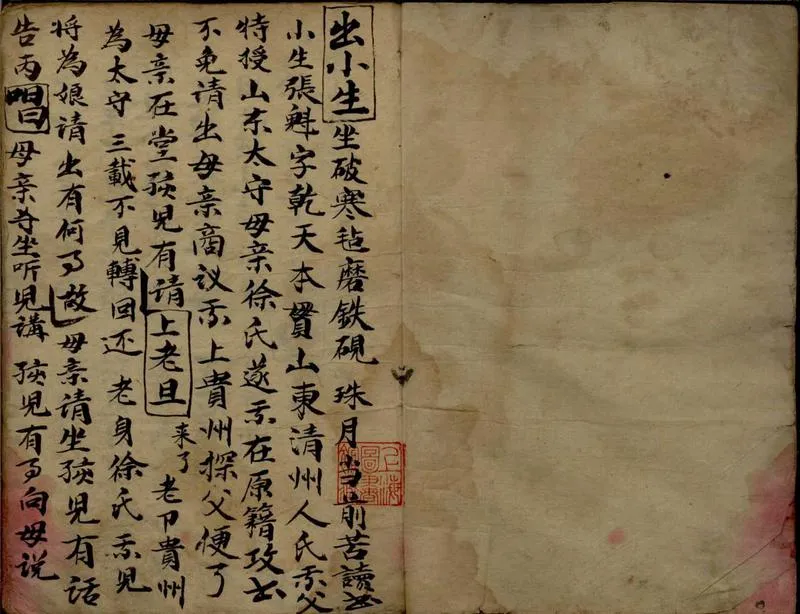 出小生 坐破寒毡磨鉄硯 珠月当前苦讀书
小生張魁字乾天本貫山東清州人氏不父
特授山东太守母亲徐氏遂不在原籍攻书
不免请出母亲商议不上貴州探父便了
母亲在堂孩児有請 上老旦 来了 老卩貴州
為太守 三載不見轉回还 老身徐氏不児
将為娘请出有何事故 母亲请坐孩児有話
告丙 唱 母亲夅坐听児講 孩児有事向母説
上海圖書館